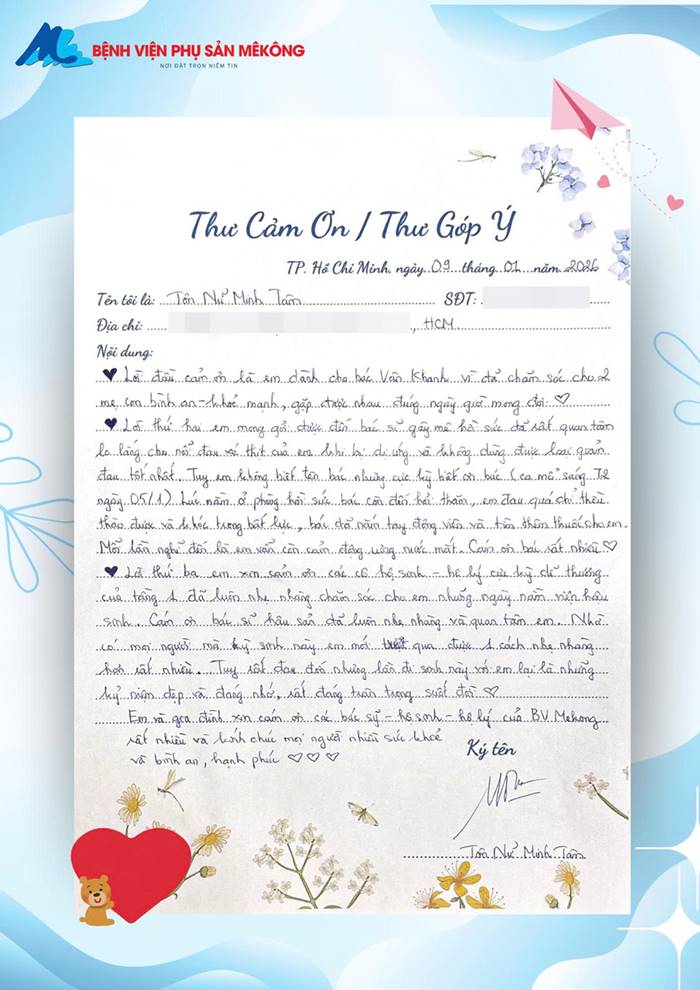 BỆNH VIỆN PHỤ SẢN MÊKÔNG
NƠI ĐẶT TRỌN NIỀM TIN
Thư Cảm Ơn / Thư Góp Ý
TP. Hồ Chí Minh, ngày 09 tháng 01 năm 2026
Tên tôi là: Tôn Nữ Minh Tâm SĐT:
Địa chỉ: , HCM
Nội dung:
♥ Lời đầu cảm ơn là em dành cho bác Vân Khanh vì đã chăm sóc cho 2
mẹ con bình an - khoẻ mạnh, gặp được nhau đúng ngày giờ mong đợi. ♡
♥ Lời thứ hai em mong gởi được đến bác sĩ gây mê hồi sức đã rất quan tâm
lo lắng cho nỗi đau xé thịt của em khi bị dị ứng và không dùng được loại giảm
đau tốt nhất. Tuy em không biết tên bác nhưng cực kỳ biết ơn bác (ca mổ sáng T2
ngày 05/1). Lúc nằm ở phòng hồi sức bác còn đến hỏi thăm, em đau quá chỉ thều
thào được và khóc trong bất lực, bác đã nắm tay động viên và tiêm thêm thuốc cho em.
Mỗi lần nghĩ đến là em vẫn còn cảm động ưng nước mắt. Cám ơn bác rất nhiều ♡
♥ Lời thứ ba em xin cảm ơn các cô hộ sinh - hộ lý cực kỳ dễ thương
của tầng 1 đã luôn nhẹ nhàng chăm sóc cho em những ngày nằm viện hậu
sinh. Cám ơn bác sĩ hậu sản đã luôn nhẹ nhàng và quan tâm em. Nhờ
có mọi người mà kỳ sinh này em mới qua được 1 cách nhẹ nhàng
hơn rất nhiều. Tuy rất đau đớn nhưng lần đi sinh này với em lại là những
kỷ niệm đẹp và đáng nhớ, rất đáng trân trọng suốt đời ♡
Em và gia đình xin cám ơn các bác sỹ - hộ sinh - hộ lý của BV. Mekong
rất nhiều và kính chúc mọi người nhiều sức khoẻ
và bình an, hạnh phúc ♡ ♡ ♡
Ký tên
Tôn Nữ Minh Tâm